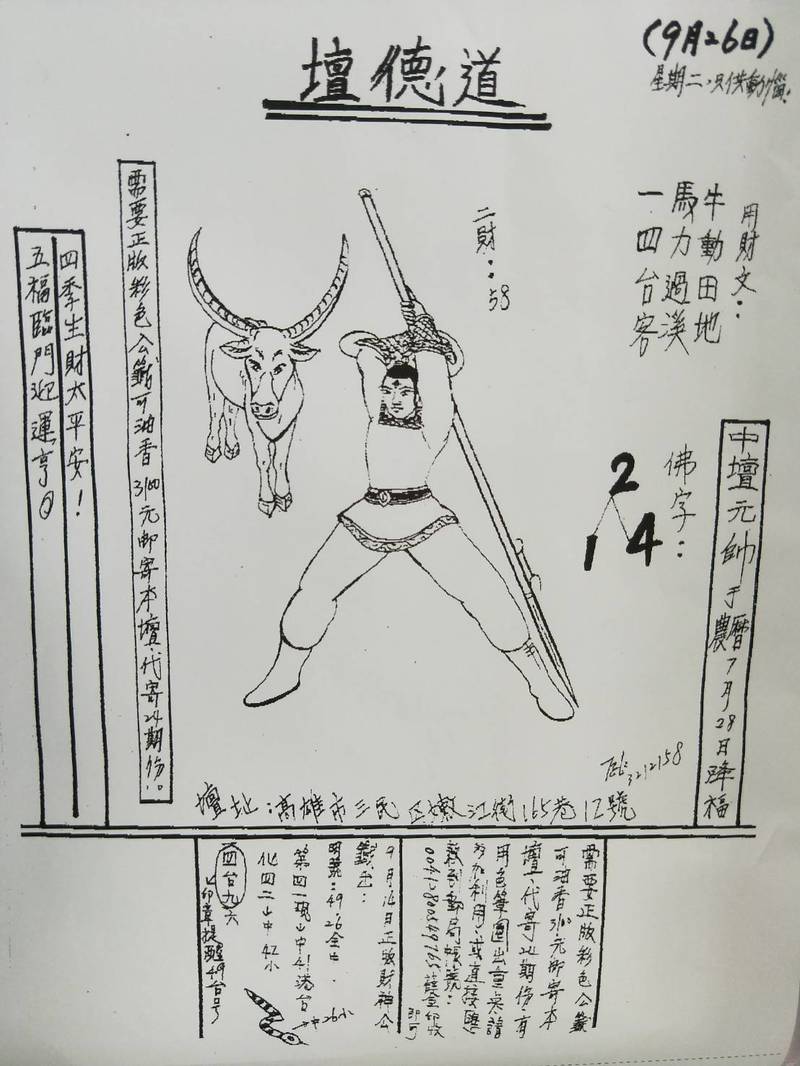 (9月26日)
星期二,只供動惱!
道德壇
用財文:
牛動田地
馬力過溪
一四台客
二財:58
佛字:
2
1 4
中壇元帥于農曆7月28日降福
需要正版彩色公籤可油香3100元郵寄本壇.代寄24期份..
四季生財太平安!
五福臨門迎運亨
3212158
壇址:高雄市三民區嫩江街165巷12號
需要正版彩色公籤
可油香3100元郵寄本
壇.代寄24期份.有
用色筆圈出重点請
參加利用.或直接匯
款到郵局帳號:
9月16日正版財神公
籤出:
明義:49.26全中.
第四一現山中41港台
化四二山中42小
四台九六
印章提醒49台号
中26小